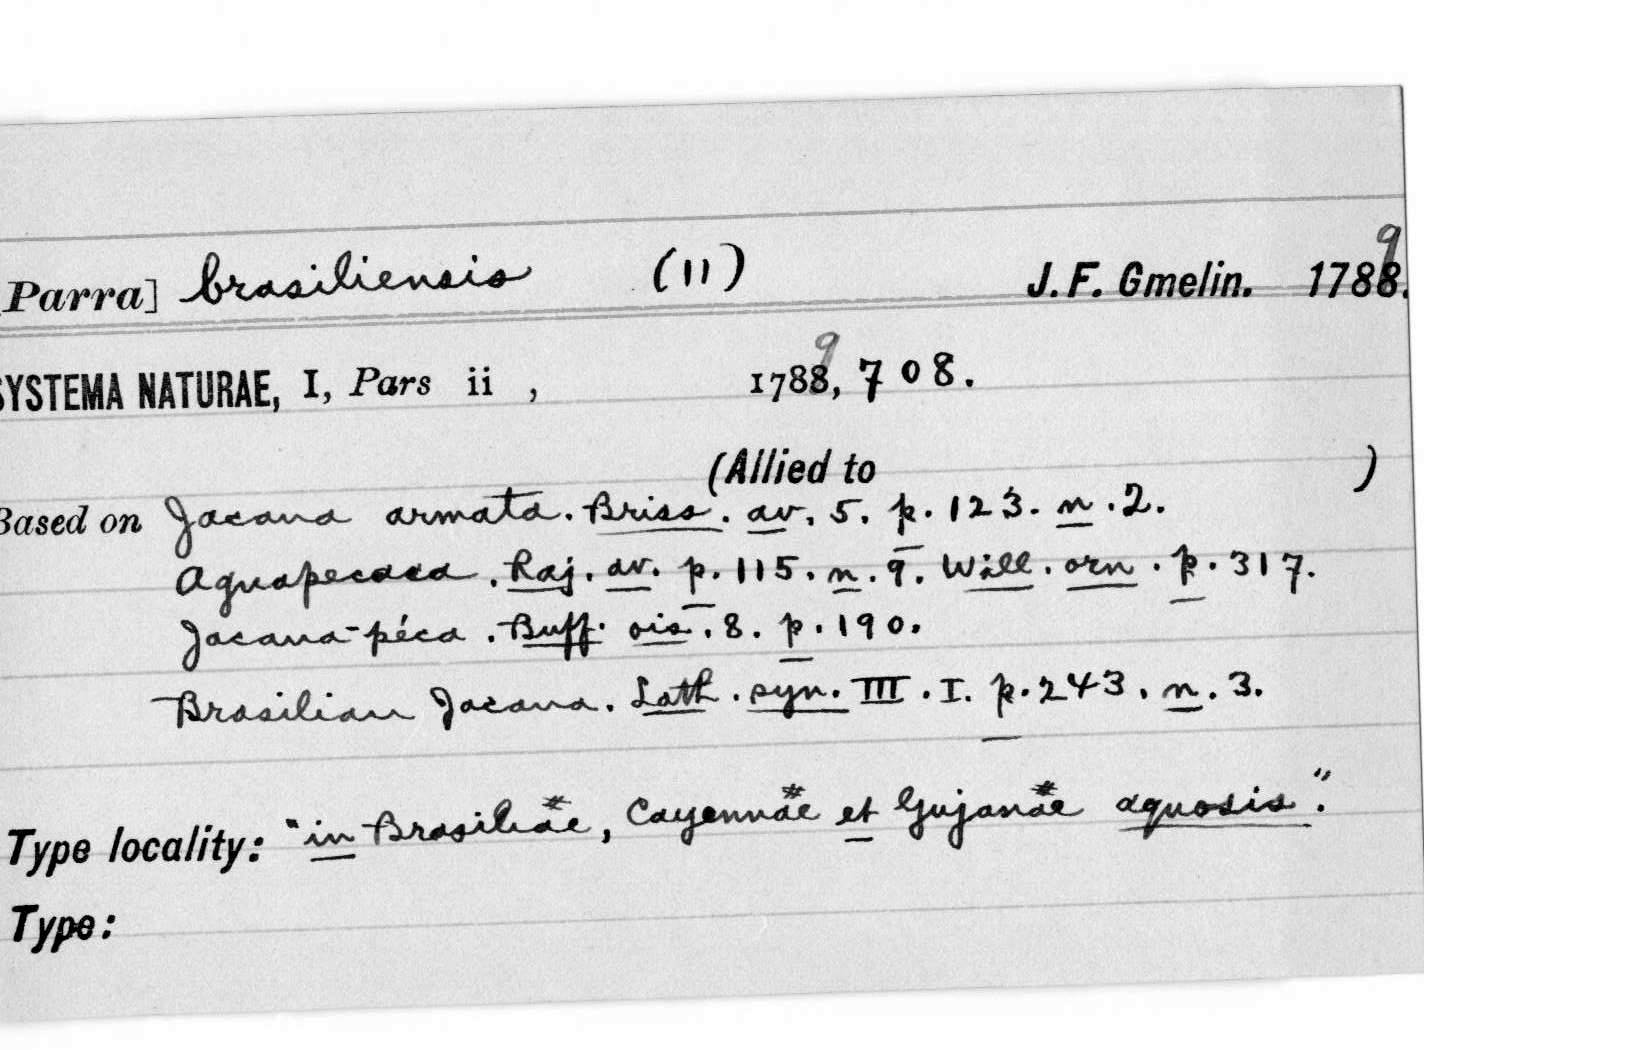 Parra] brasiliensis (11) J. F. Gmelin. 1788. 9
SYSTEMA NATURAE, I, Pars ii , 1788, 9 708.
(Allied to )
Based on Jacana armata. Briss. av. 5. p. 123. n. 2.
Aguapecaca. Raj. av. p. 115. n. 9. Will. orn. p. 317.
Jacana-péca. Buff. ois. 8. p. 190.
Brasilian Jacana. Lath. syn. III. I. p. 243. n. 3.
Type locality: "in Brasiliae, Cayennae et Gujanae aquosis".
Type: